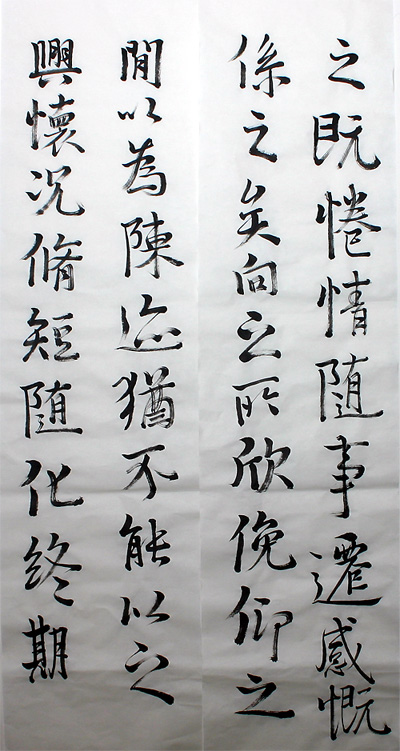 之既惓情随事遷感慨
係之矣向之所欣俛仰之
閒以為陳迹猶不能以之
興懷况脩短随化終期